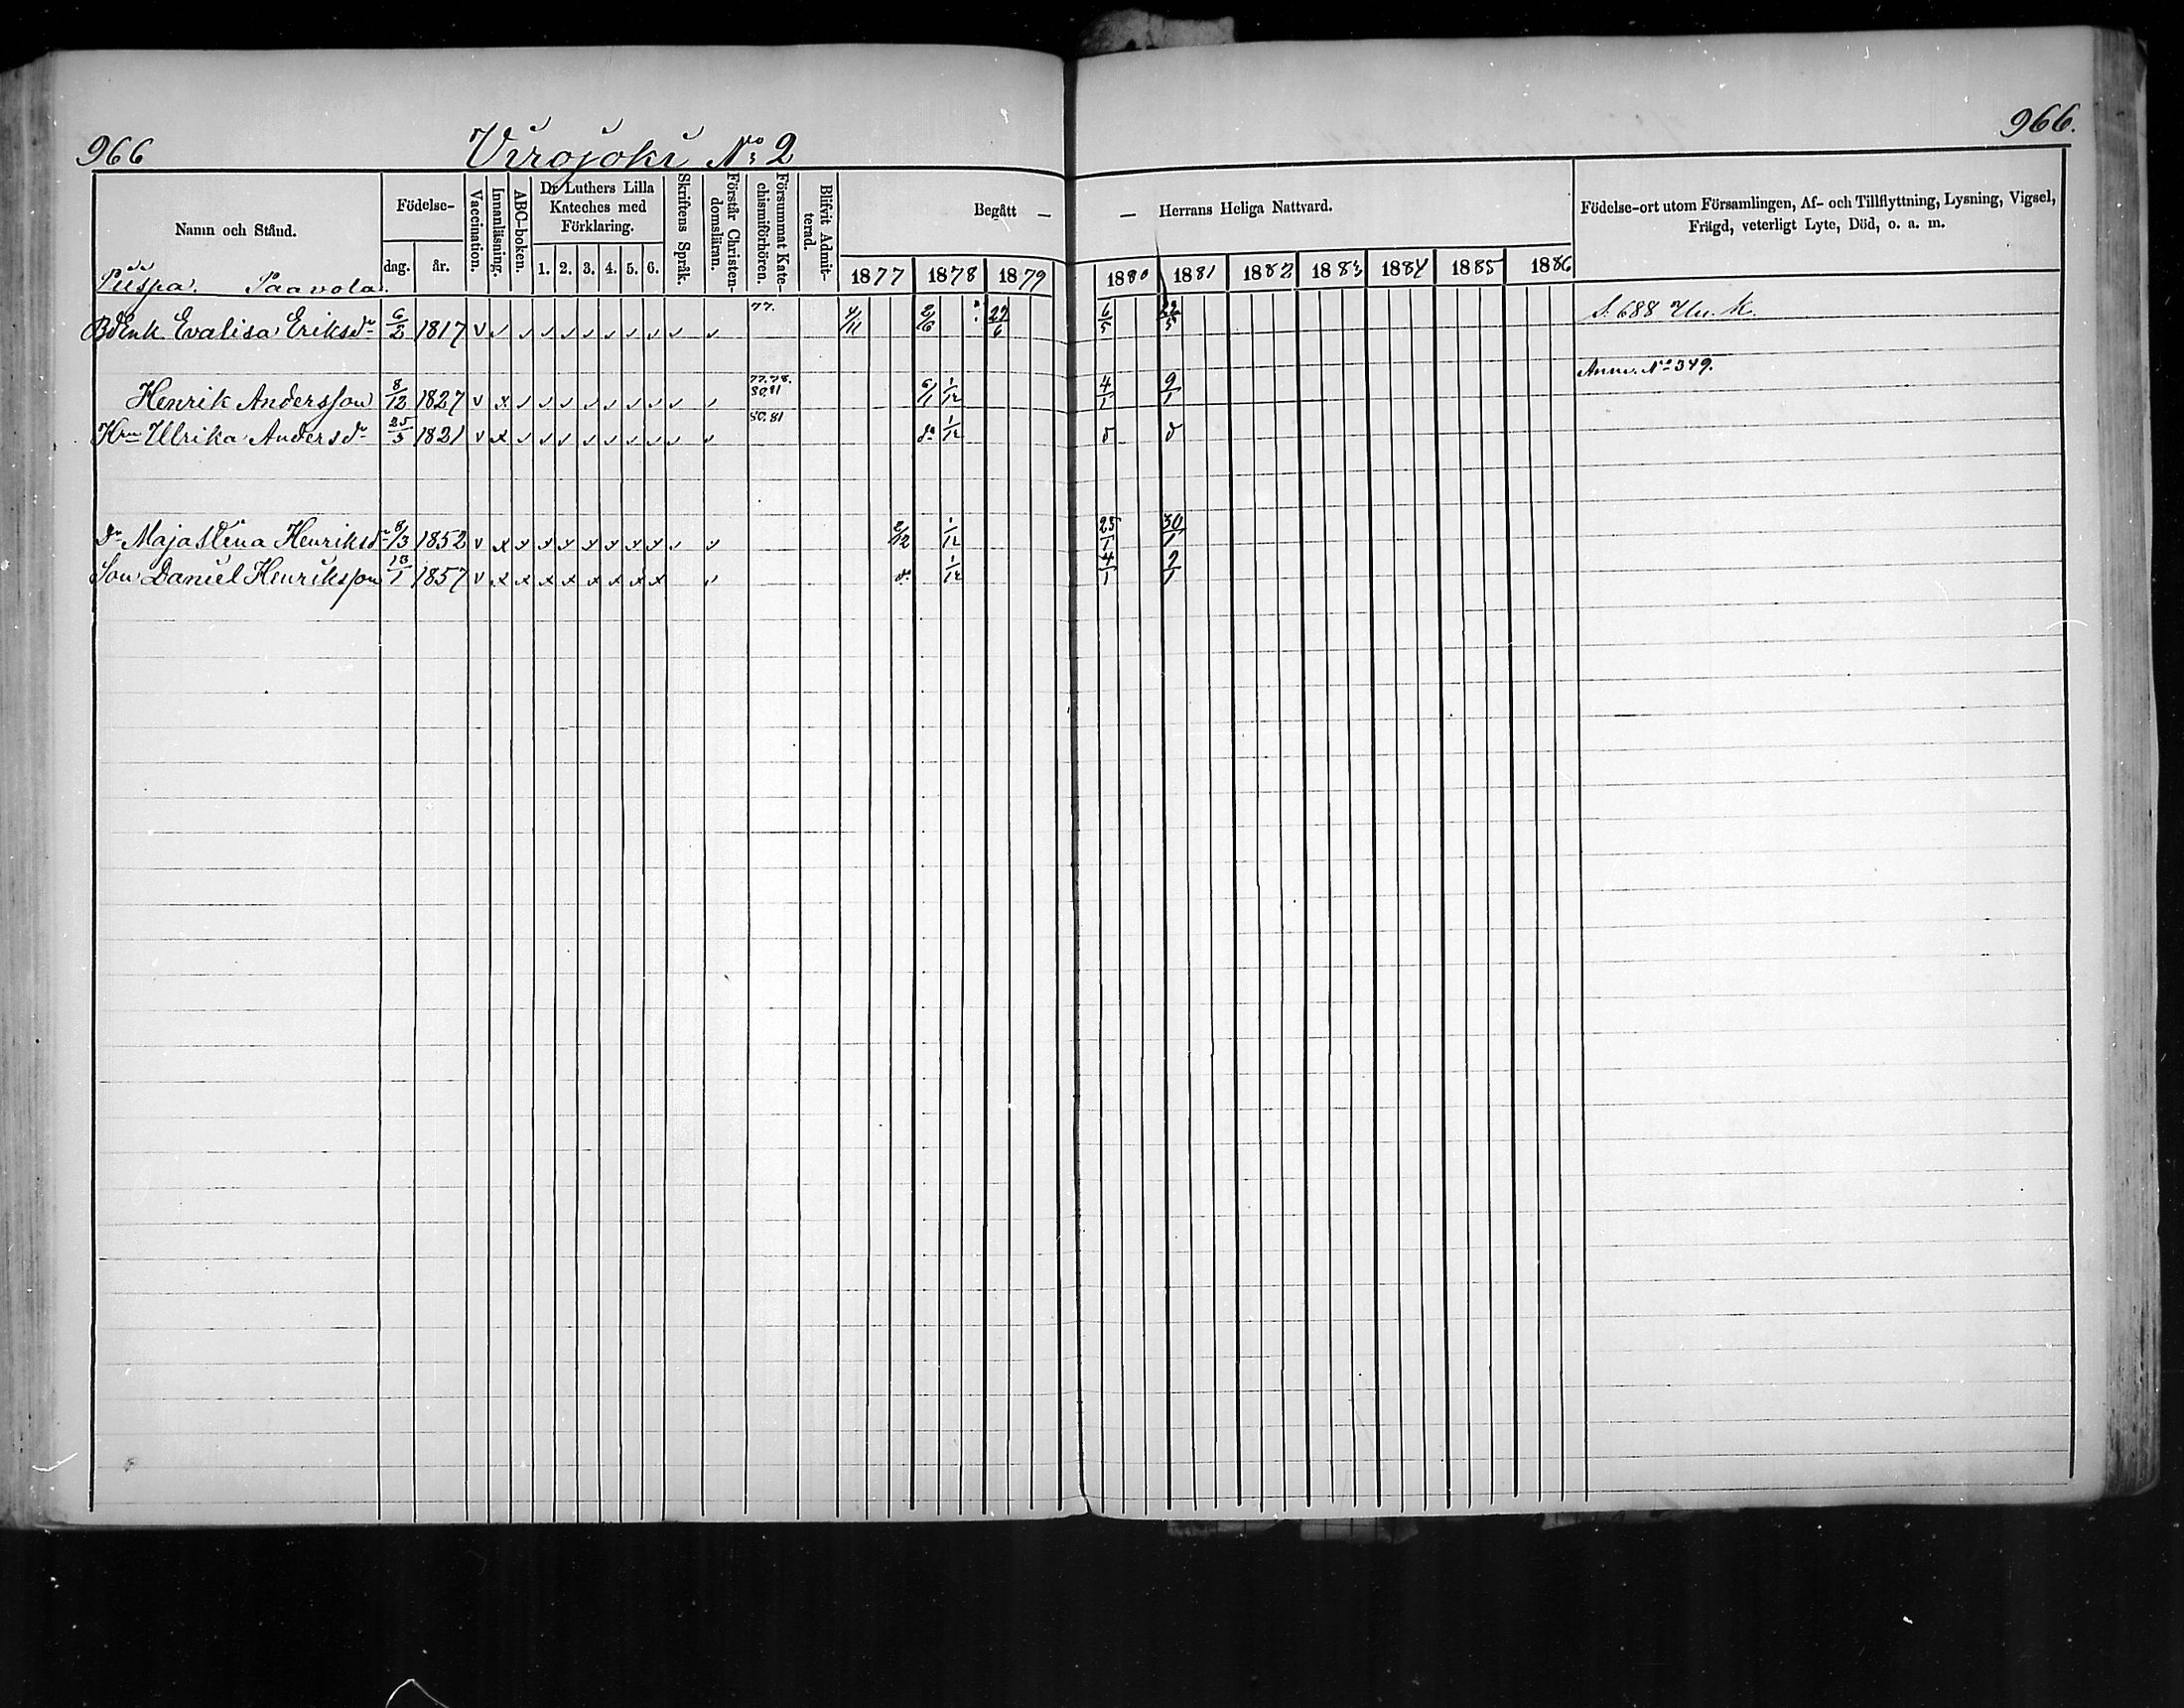 966 Virojoki No 2 966.
Namn och Stånd. Födelse- dag. år. Vaccination. Innanläsning. ABC-boken. Dr Luthers Lilla Kateches med Förklaring. 1. 2. 3. 4. 5. 6. Skriftens Språk. Förstår Christendomsläran. Försummat Katechismiförhören. Blifvit Admitterad. Begått — — Herrans Heliga Nattvard. Födelse-ort utom Församlingen, Af- och Tillflyttning, Lysning, Vigsel, Frägd, veterligt Lyte, Död, o. a. m.
1877 1878 1879 1880 1881 1882 1883 1884 1885 1886
Piispa. Paavola.
BdEnk. Evalisa Eriksdr 6/2 1817 v v v v v v v v v v v 77. 4/11 2/6 29/6 6/5 22/5 S. 688 Uu. K.
Anm. No 349.
Henrik Andersson 8/12 1827 v x v v v v v v v v v 77.78. 80.81 6/1 1/12 4/1 9/1
Hu Ulrika Andersdr 25/3 1821 v x v v v v v v v v v 80.81 do 1/12 d d
Dr Maja Stina Henriksdr 8/3 1852 v x x x x x x x x v v 2/12 1/12 25/1 30/1
Son Daniel Henriksson 18/1 1857 v x x x x x x x x v do 1/12 4/1 9/1